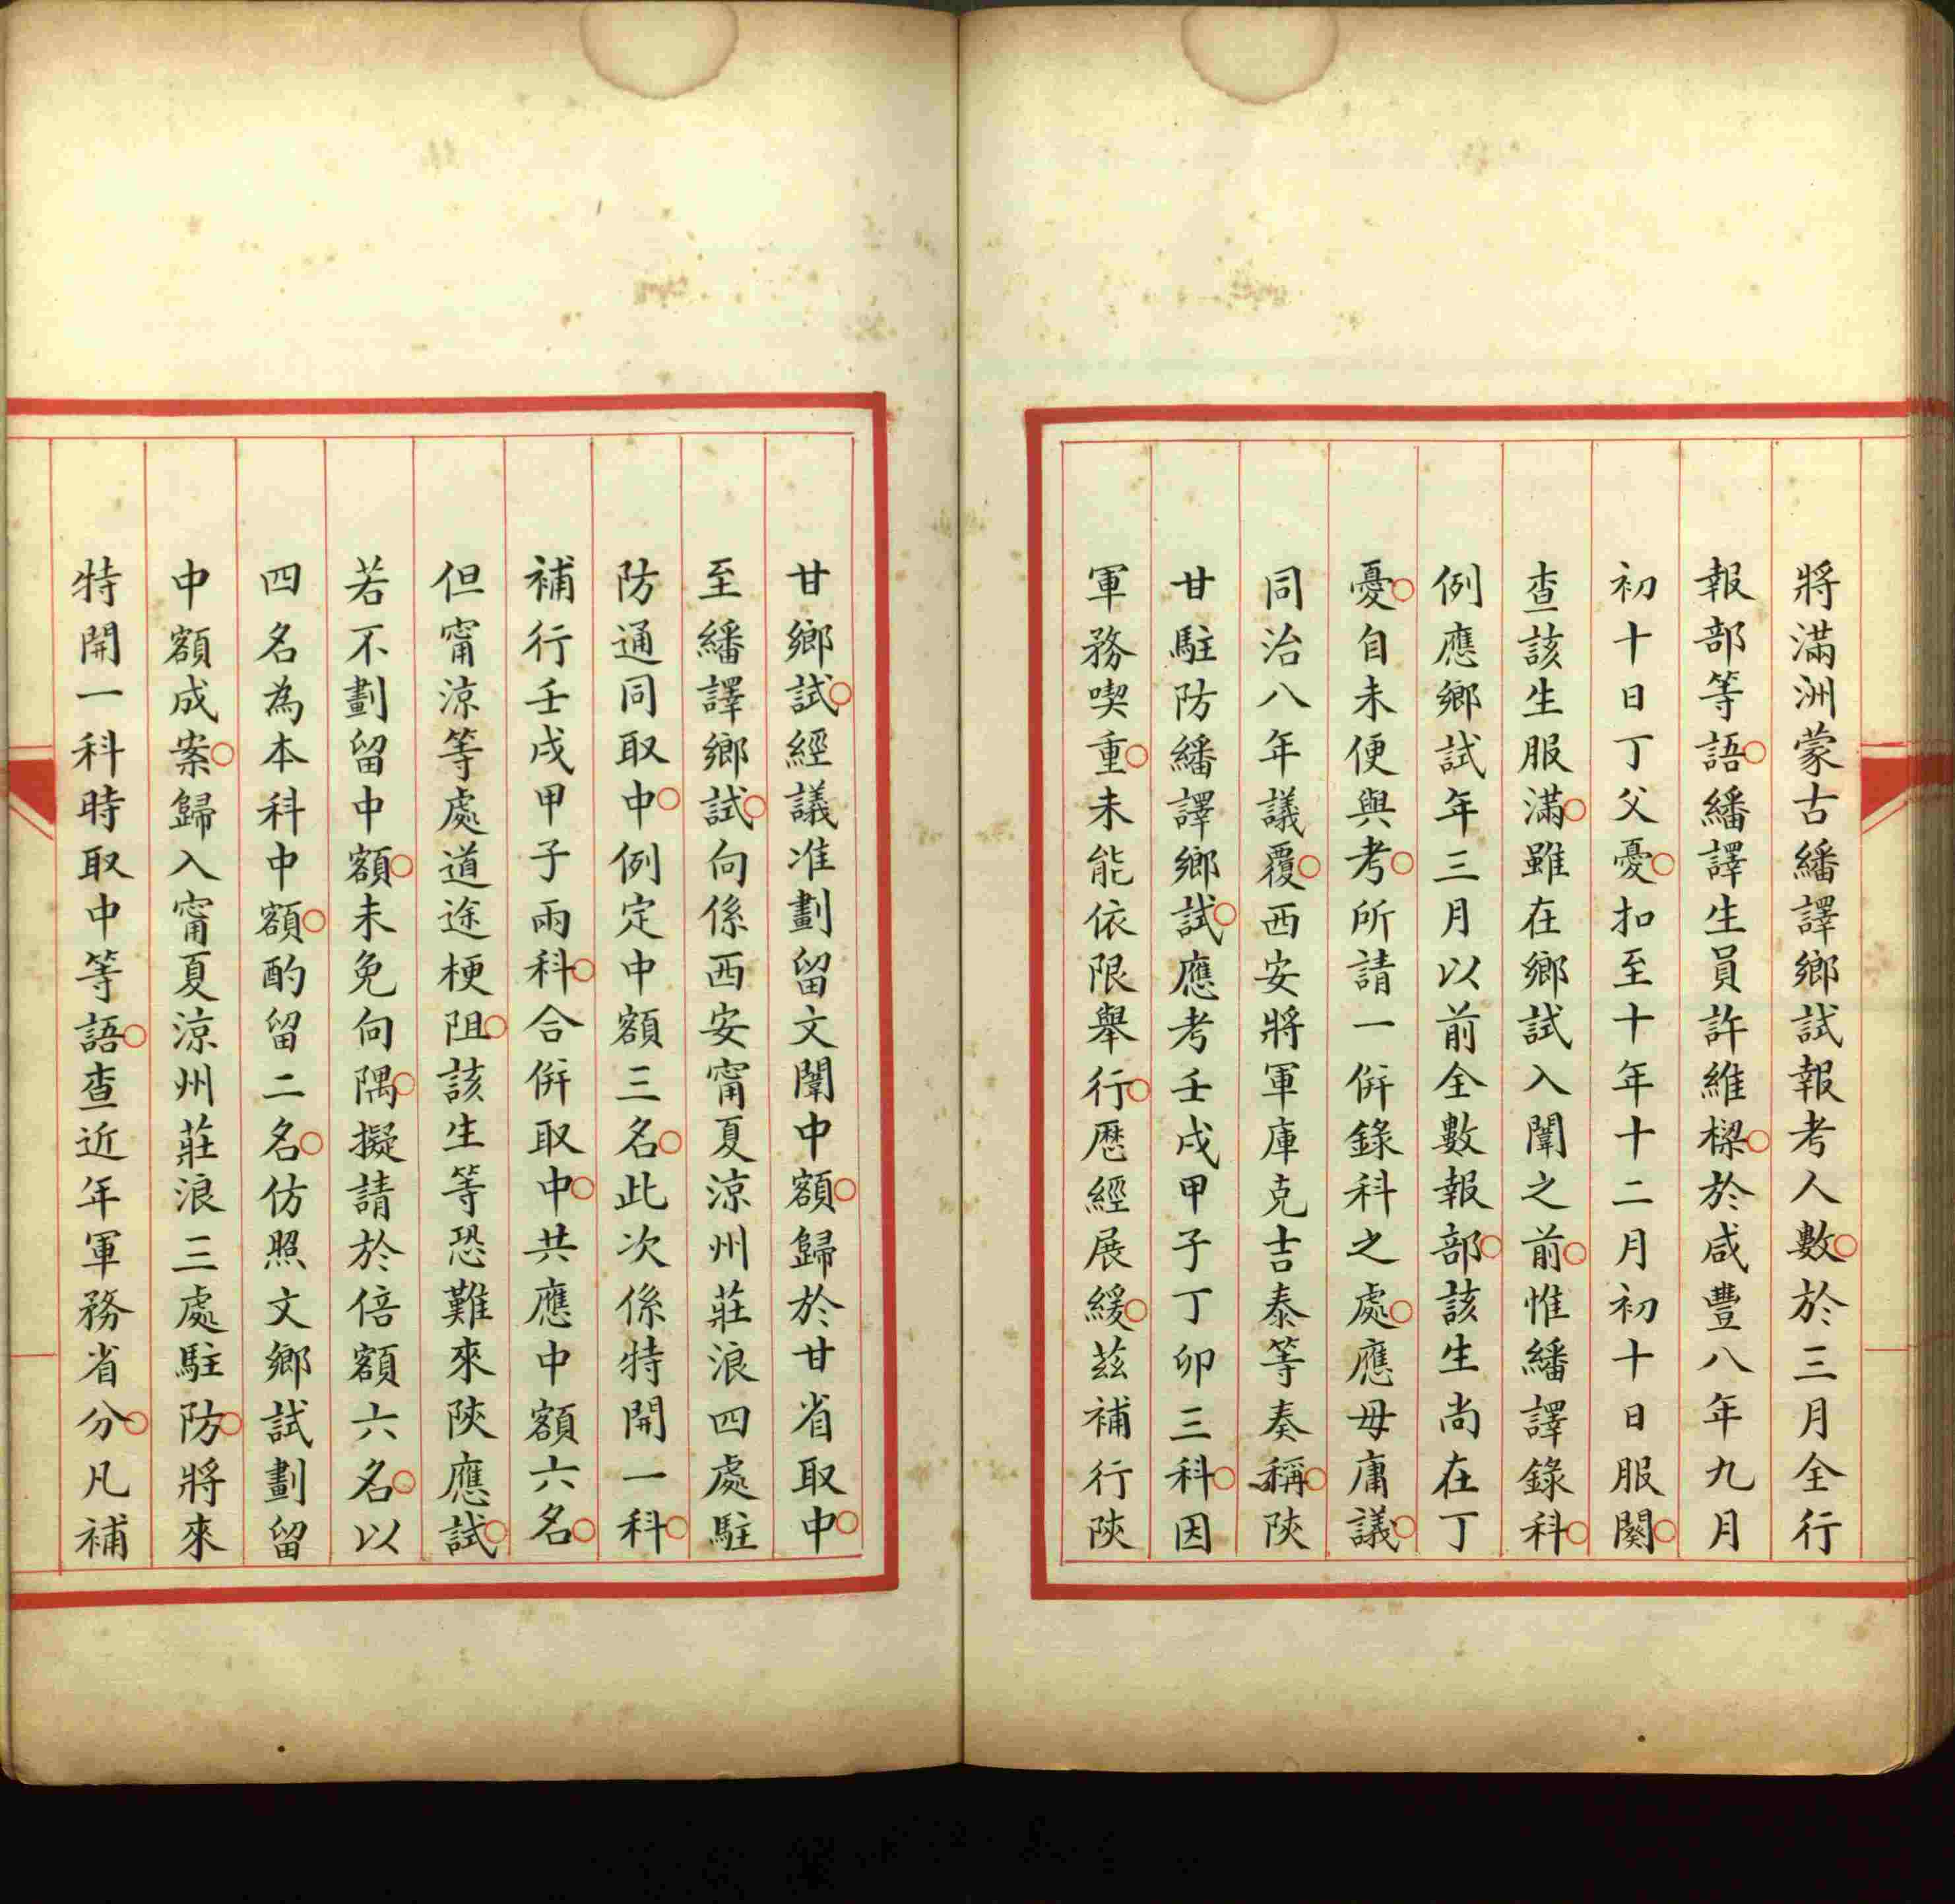 將滿洲蒙古繙譯鄉試報考人數○於三月全行
報部等語○繙譯生員許維樑○於咸豐八年九月
初十日丁父憂○扣至十年十二月初十日服闋○
查該生服滿○雖在鄉試入闈之前○惟繙譯錄科○
例應鄉試年三月以前全數報部○該生尚在丁
憂○自未便與考○所請一併錄科之處○應毋庸議○
同治八年議覆○西安將軍庫克吉泰等奏稱○陝
甘駐防繙譯鄉試○應考壬戌甲子丁卯三科○因
軍務喫重○未能依限舉行○歷經展緩○茲補行陝
甘鄉試○經議准劃留文闈中額○歸於甘省取中○
至繙譯鄉試○向係西安甯夏涼州莊浪四處駐
防通同取中○例定中額三名○此次係特開一科○
補行壬戌甲子兩科○合併取中○共應中額六名○
但甯涼等處道途梗阻○該生等恐難來陝應試○
若不劃留中額○未免向隅○擬請於倍額六名○以
四名為本科中額○酌留二名○仿照文鄉試劃留
中額成案○歸入甯夏涼州莊浪三處駐防○將來
特開一科時取中等語○查近年軍務省分○凡補